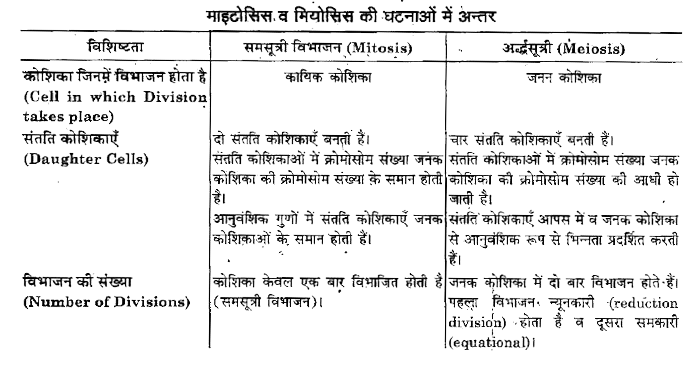 माइटोसिस व मियोसिस की घटनाओं में अन्तर
विशिष्टता समसूत्री विभाजन (Mitosis) अर्द्धसूत्री (Meiosis)
कोशिका जिनमें विभाजन होता है कायिक कोशिका जनन कोशिका
(Cell in which Division
takes place)
संतति कोशिकाएँ दो संतति कोशिकाएँ बनती हैं। चार संतति कोशिकाएँ बनती हैं।
(Daughter Cells) संतति कोशिकाओं में क्रोमोसोम संख्या जनक संतति कोशिकाओं में क्रोमोसोम संख्या जनक
कोशिका की क्रोमोसोम संख्या के समान होती कोशिका की क्रोमोसोम संख्या की आधी हो
है। जाती है।
आनुवंशिक गुणों में संतति कोशिकाएँ जनक संतति कोशिकाएँ आपस में व जनक कोशिका
कोशिकाओं के समान होती हैं। से आनुवंशिक रूप से भिन्नता प्रदर्शित करती
हैं।
विभाजन की संख्या कोशिका केवल एक बार विभाजित होती है जनक कोशिका में दो बार विभाजन होते हैं।
(Number of Divisions) (समसूत्री विभाजन)। पहला विभाजन न्यूनकारी (reduction
division) होता है व दूसरा समकारी
(equational)।